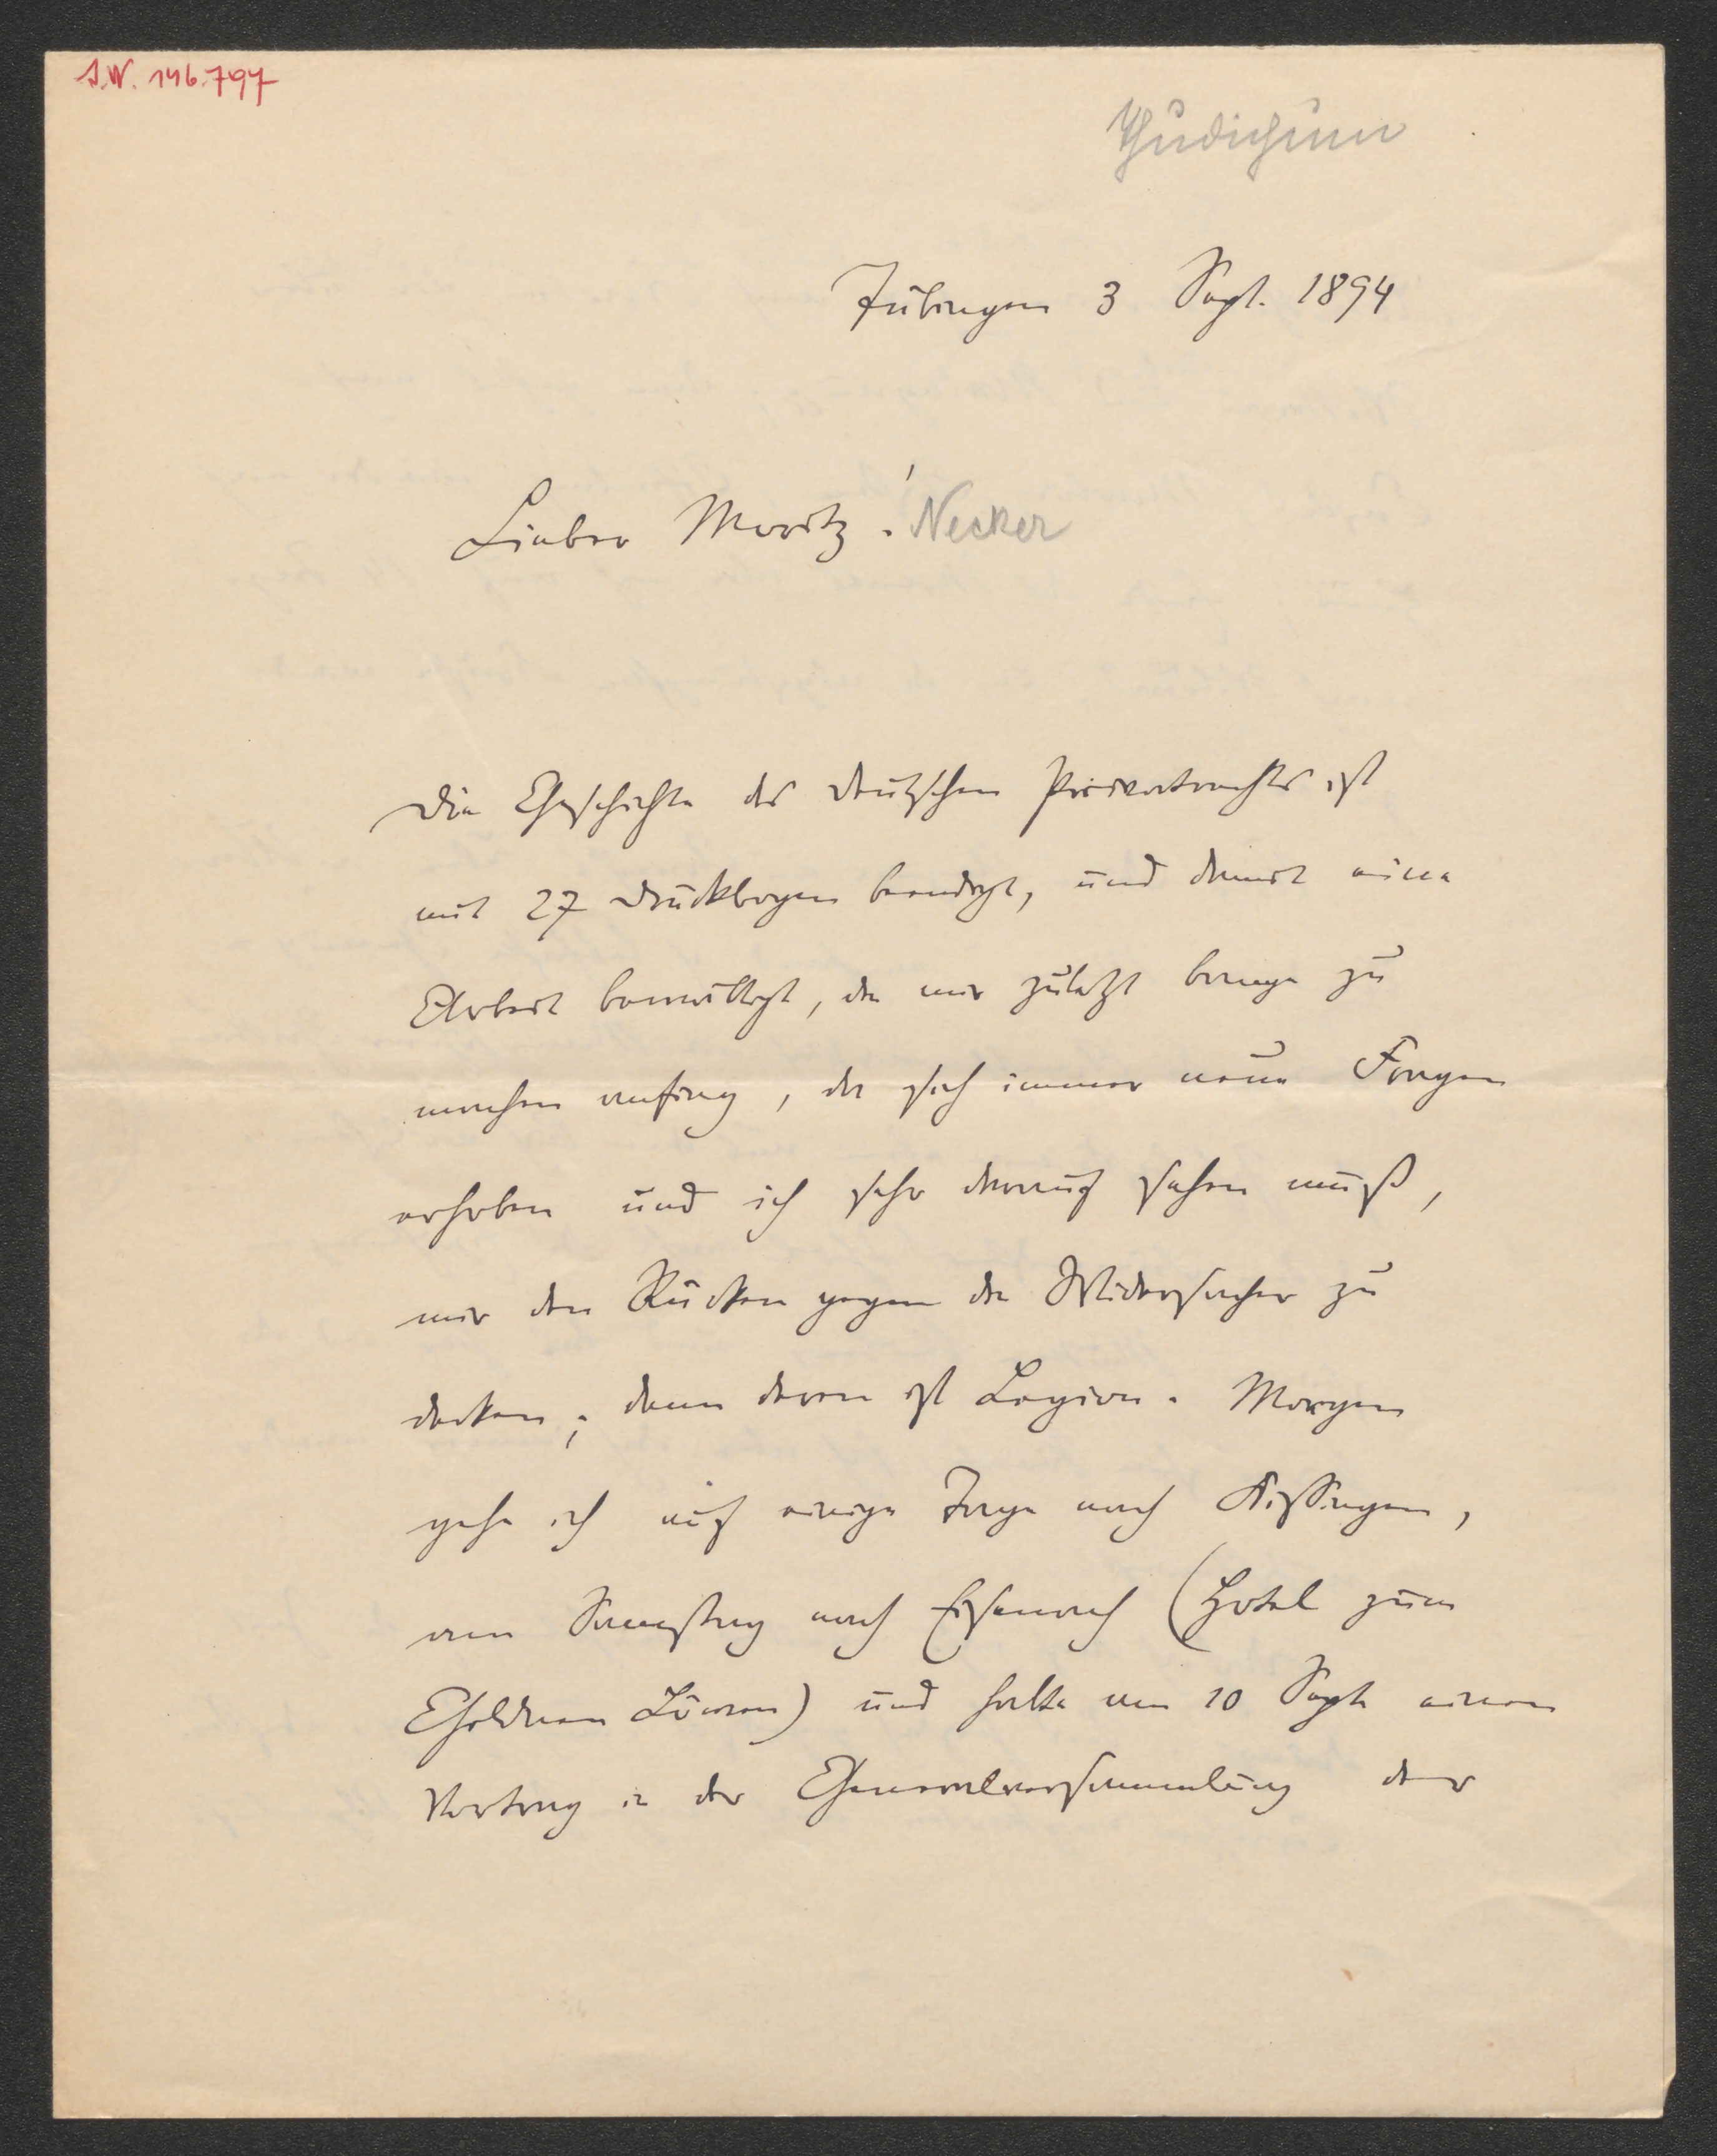 I.N. 146.797
Thudichum
Tübingen 3 Sept. 1894
Lieber Moritz! Necker
Die Geschichte des deutschen Privatrechts ist
mit 27 Druckbogen beendigt, und damit eine
Arbeit bewältigt, die mir zuletzt bange zu
machen anfing, da sich immer neue Fragen
erhoben und ich sehr darauf sehen muß,
mir den Rücken gegen die Widersacher zu
decken; denn deren ist Legion. Morgen
gehe ich auf einige Tage nach Kissingen,
am Samstag nach Eisenach (Hotel zum
Goldnen Löwen) und halte am 10 Sept einen
Vortrag in der Generalversammlung der